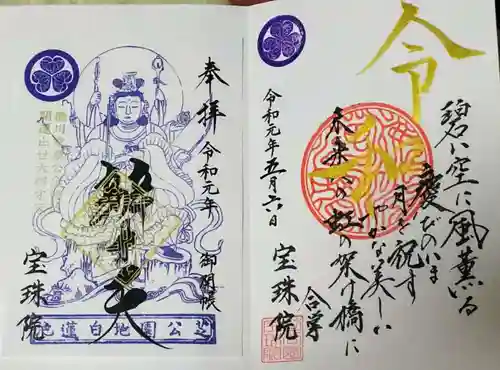 令和
碧い空に風薫る
慶びのいま
月を祝す
やかな美しい
未来への虹の架け橋に
合掌
令和元年五月六日
宝珠院
奉拝
令和元年
御開帳
辨才天
宝珠院
芝公園地白蓮池